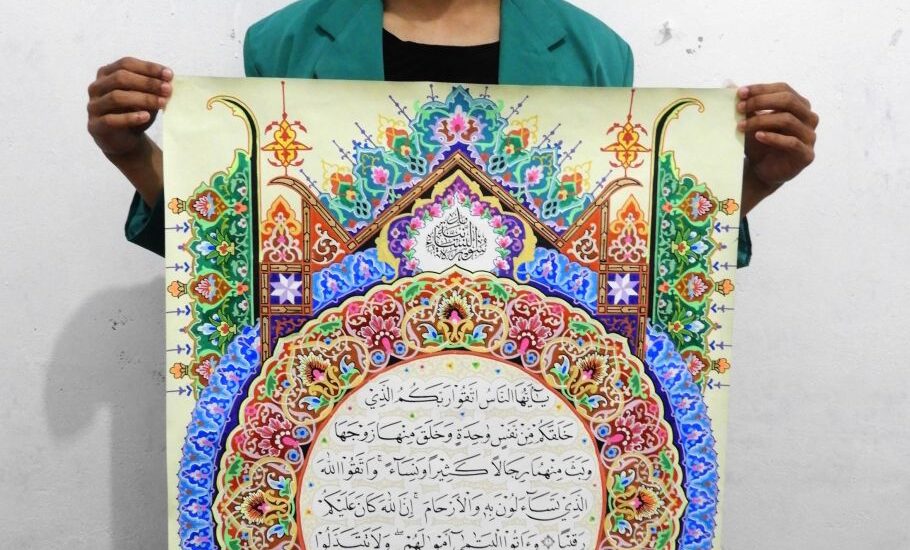 سورة النساء
يٰٓأَيُّهَا النَّاسُ اتَّقُوْا رَبَّكُمُ الَّذِيْ
خَلَقَكُمْ مِّنْ نَّفْسٍ وّٰحِدَةٍ وَّخَلَقَ مِنْهَا زَوْجَهَا
وَبَثَّ مِنْهُمَا رِجَالًا كَثِيْرًا وَّنِسَآءً ۚ وَاتَّقُوا اللّٰهَ
الَّذِيْ تَسَآءَلُوْنَ بِهٖ وَالْاَرْحَامَ ۗ إِنَّ اللّٰهَ كَانَ عَلَيْكُمْ
رَقِيْبًا وَءَاتُوا الْيَتٰمٰىٓ أَمْوَالَهُمْ ۖ وَلَا تَتَبَدَّلُوا